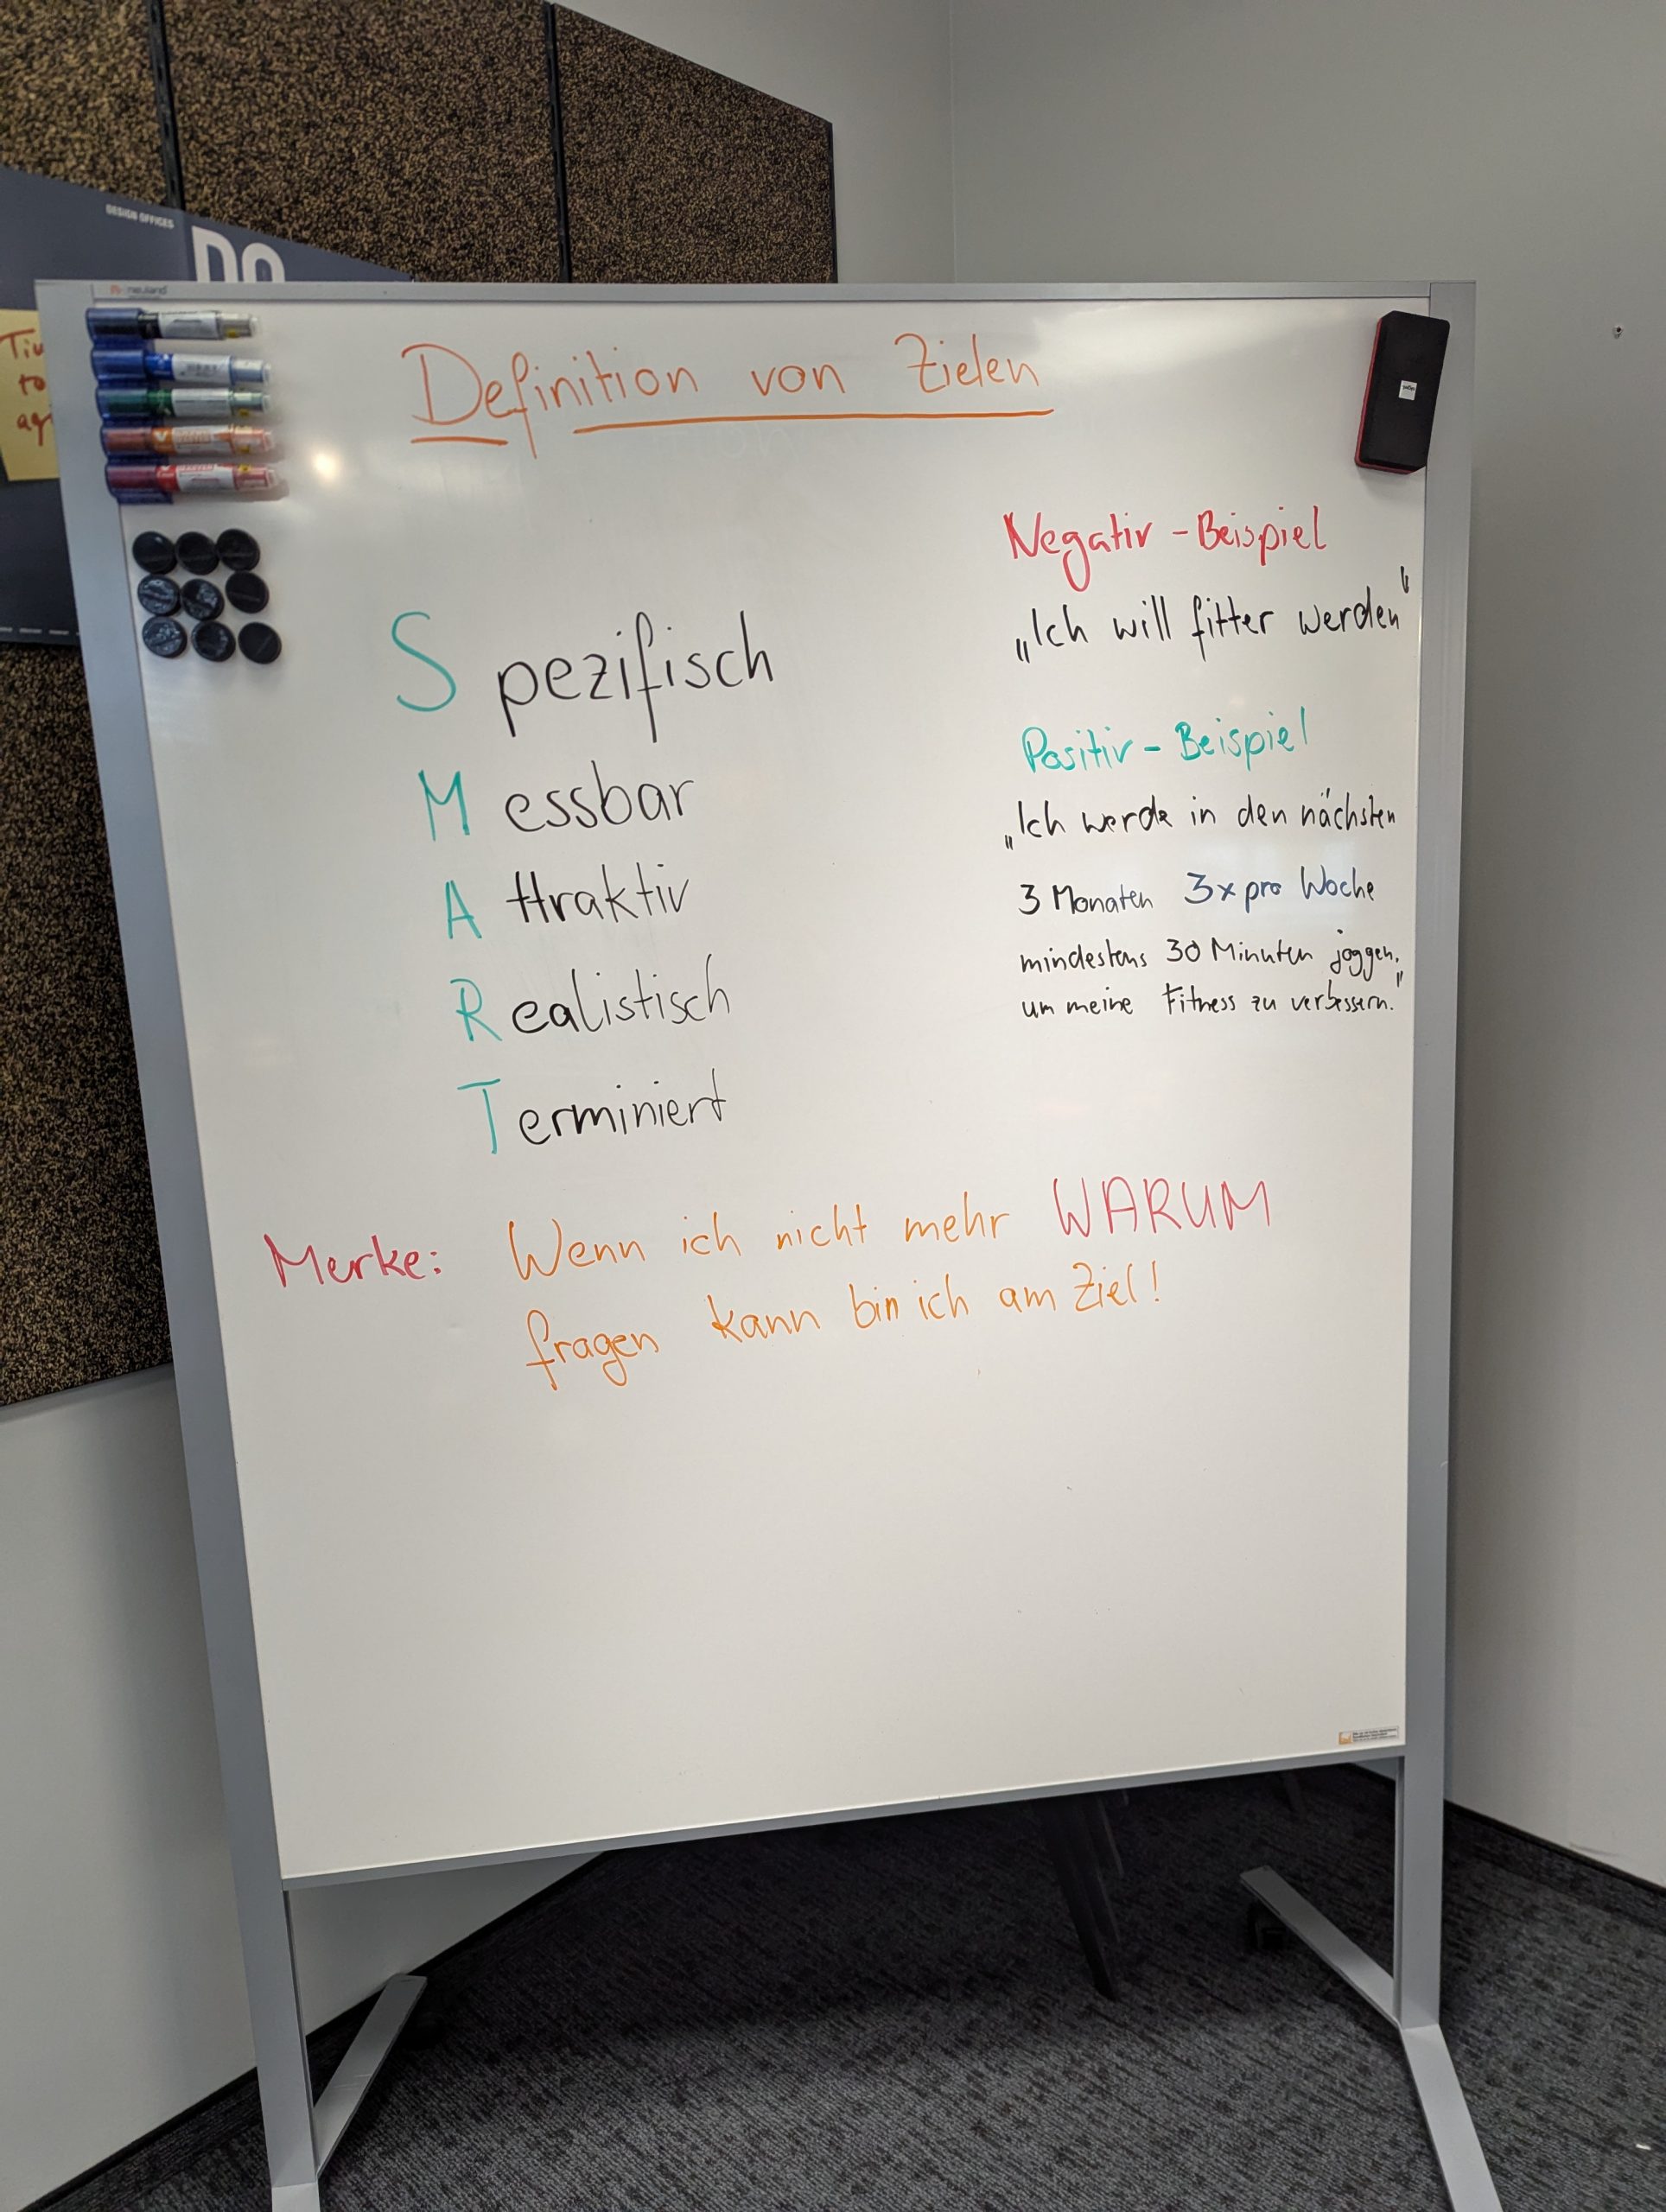 DESIGN OFFICES
DO
neuland
Definition von Zielen
Negativ - Beispiel
„Ich will fitter werden"
Spezifisch
Positiv - Beispiel
Messbar
„Ich werde in den nächsten
Attraktiv
3 Monaten 3x pro Woche
mindestens 30 Minuten joggen,
Realistisch
um meine Fitness zu verbessern."
Terminiert
Merke: Wenn ich nicht mehr WARUM
fragen kann bin ich am Ziel!